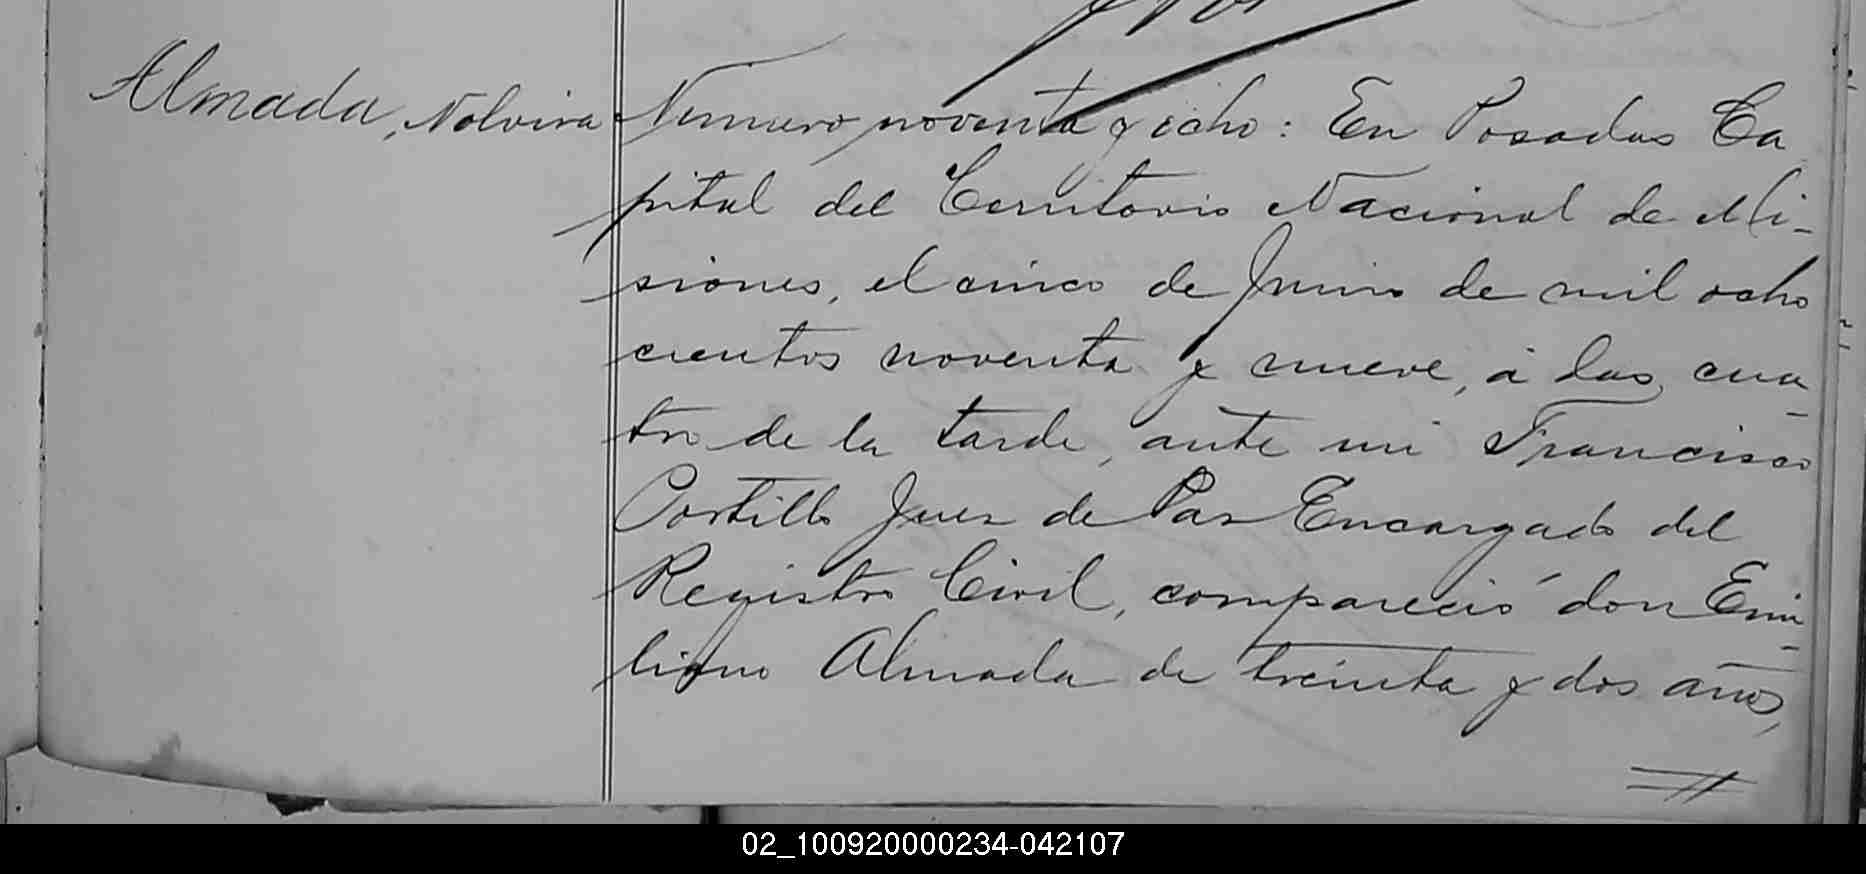 Almada, Nolvira
Numero noventa y ocho: En Posadas Ca
pital del Territorio Nacional de Mi-
siones, el cinco de Junio de mil ocho
cientos noventa y nueve, á las cua-
tro de la tarde, ante mi Francisco
Portillo Juez de Paz Encargado del
Registro Civil, compareció don Emi-
liano Almada de treinta y dos años,
02_100920000234-042107